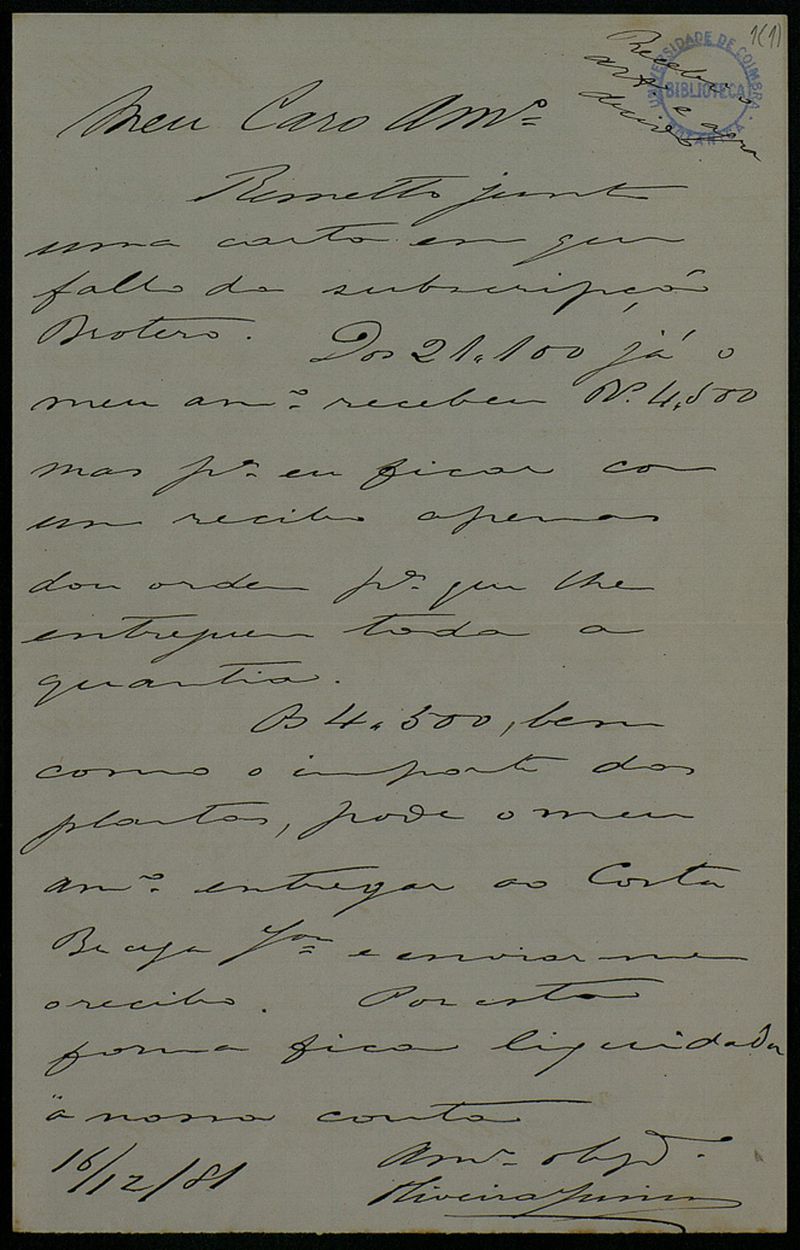 1(1)
UNIVERSIDADE DE COIMBRA
BIBLIOTECA
BOTANICA
Recebi a
e agra
Meu Caro Amº
Remetto junto
uma carta em que
fallo da subscripção
Brotero. Dos 21.100 já o
meu amº recebeu Rs. 4.500
mas pª eu ficar com
um recibo apenas
dou ordem pª que lhe
entreguem toda a
quantia.
Os 4.500, bem
como o importe das
plantas, pode o meu
amº entregar ao Costa
Braga Jor e enviar-me
o recibo. Por esta
forma fica liquidada
a nossa conta
16/12/81
Amº obgdº
Oliveira Junior